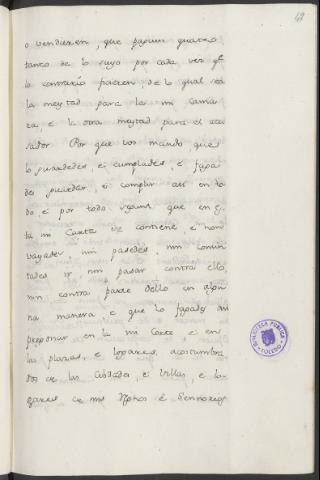 42
o vendieren, que paguen quatro
tanto de lo suyo por cada vez qe
lo contrario ficieren, de lo qual sea
la meytad para la mi Cama
ra, e la otra meytad para el acu
sador. Por que vos mando que
lo guardedes, e cumplades, e faga
des guardar, e complir asi en to
do, e por todo segunt que en es
ta mi Carta se contiene, e non
vayades nin pasedes, nin consin
tades ir, nin pasar contra ello,
nin contra parte dello en algu
na manera, e que lo fagades asi
pregonar en la mi Corte, e en
las plazas, e logares, acostumbra
dos de las Cibdades, e Villas, e lo
gares de mis Regnos e Sennorios
BIBLIOTECA PUBLICA TOLEDO